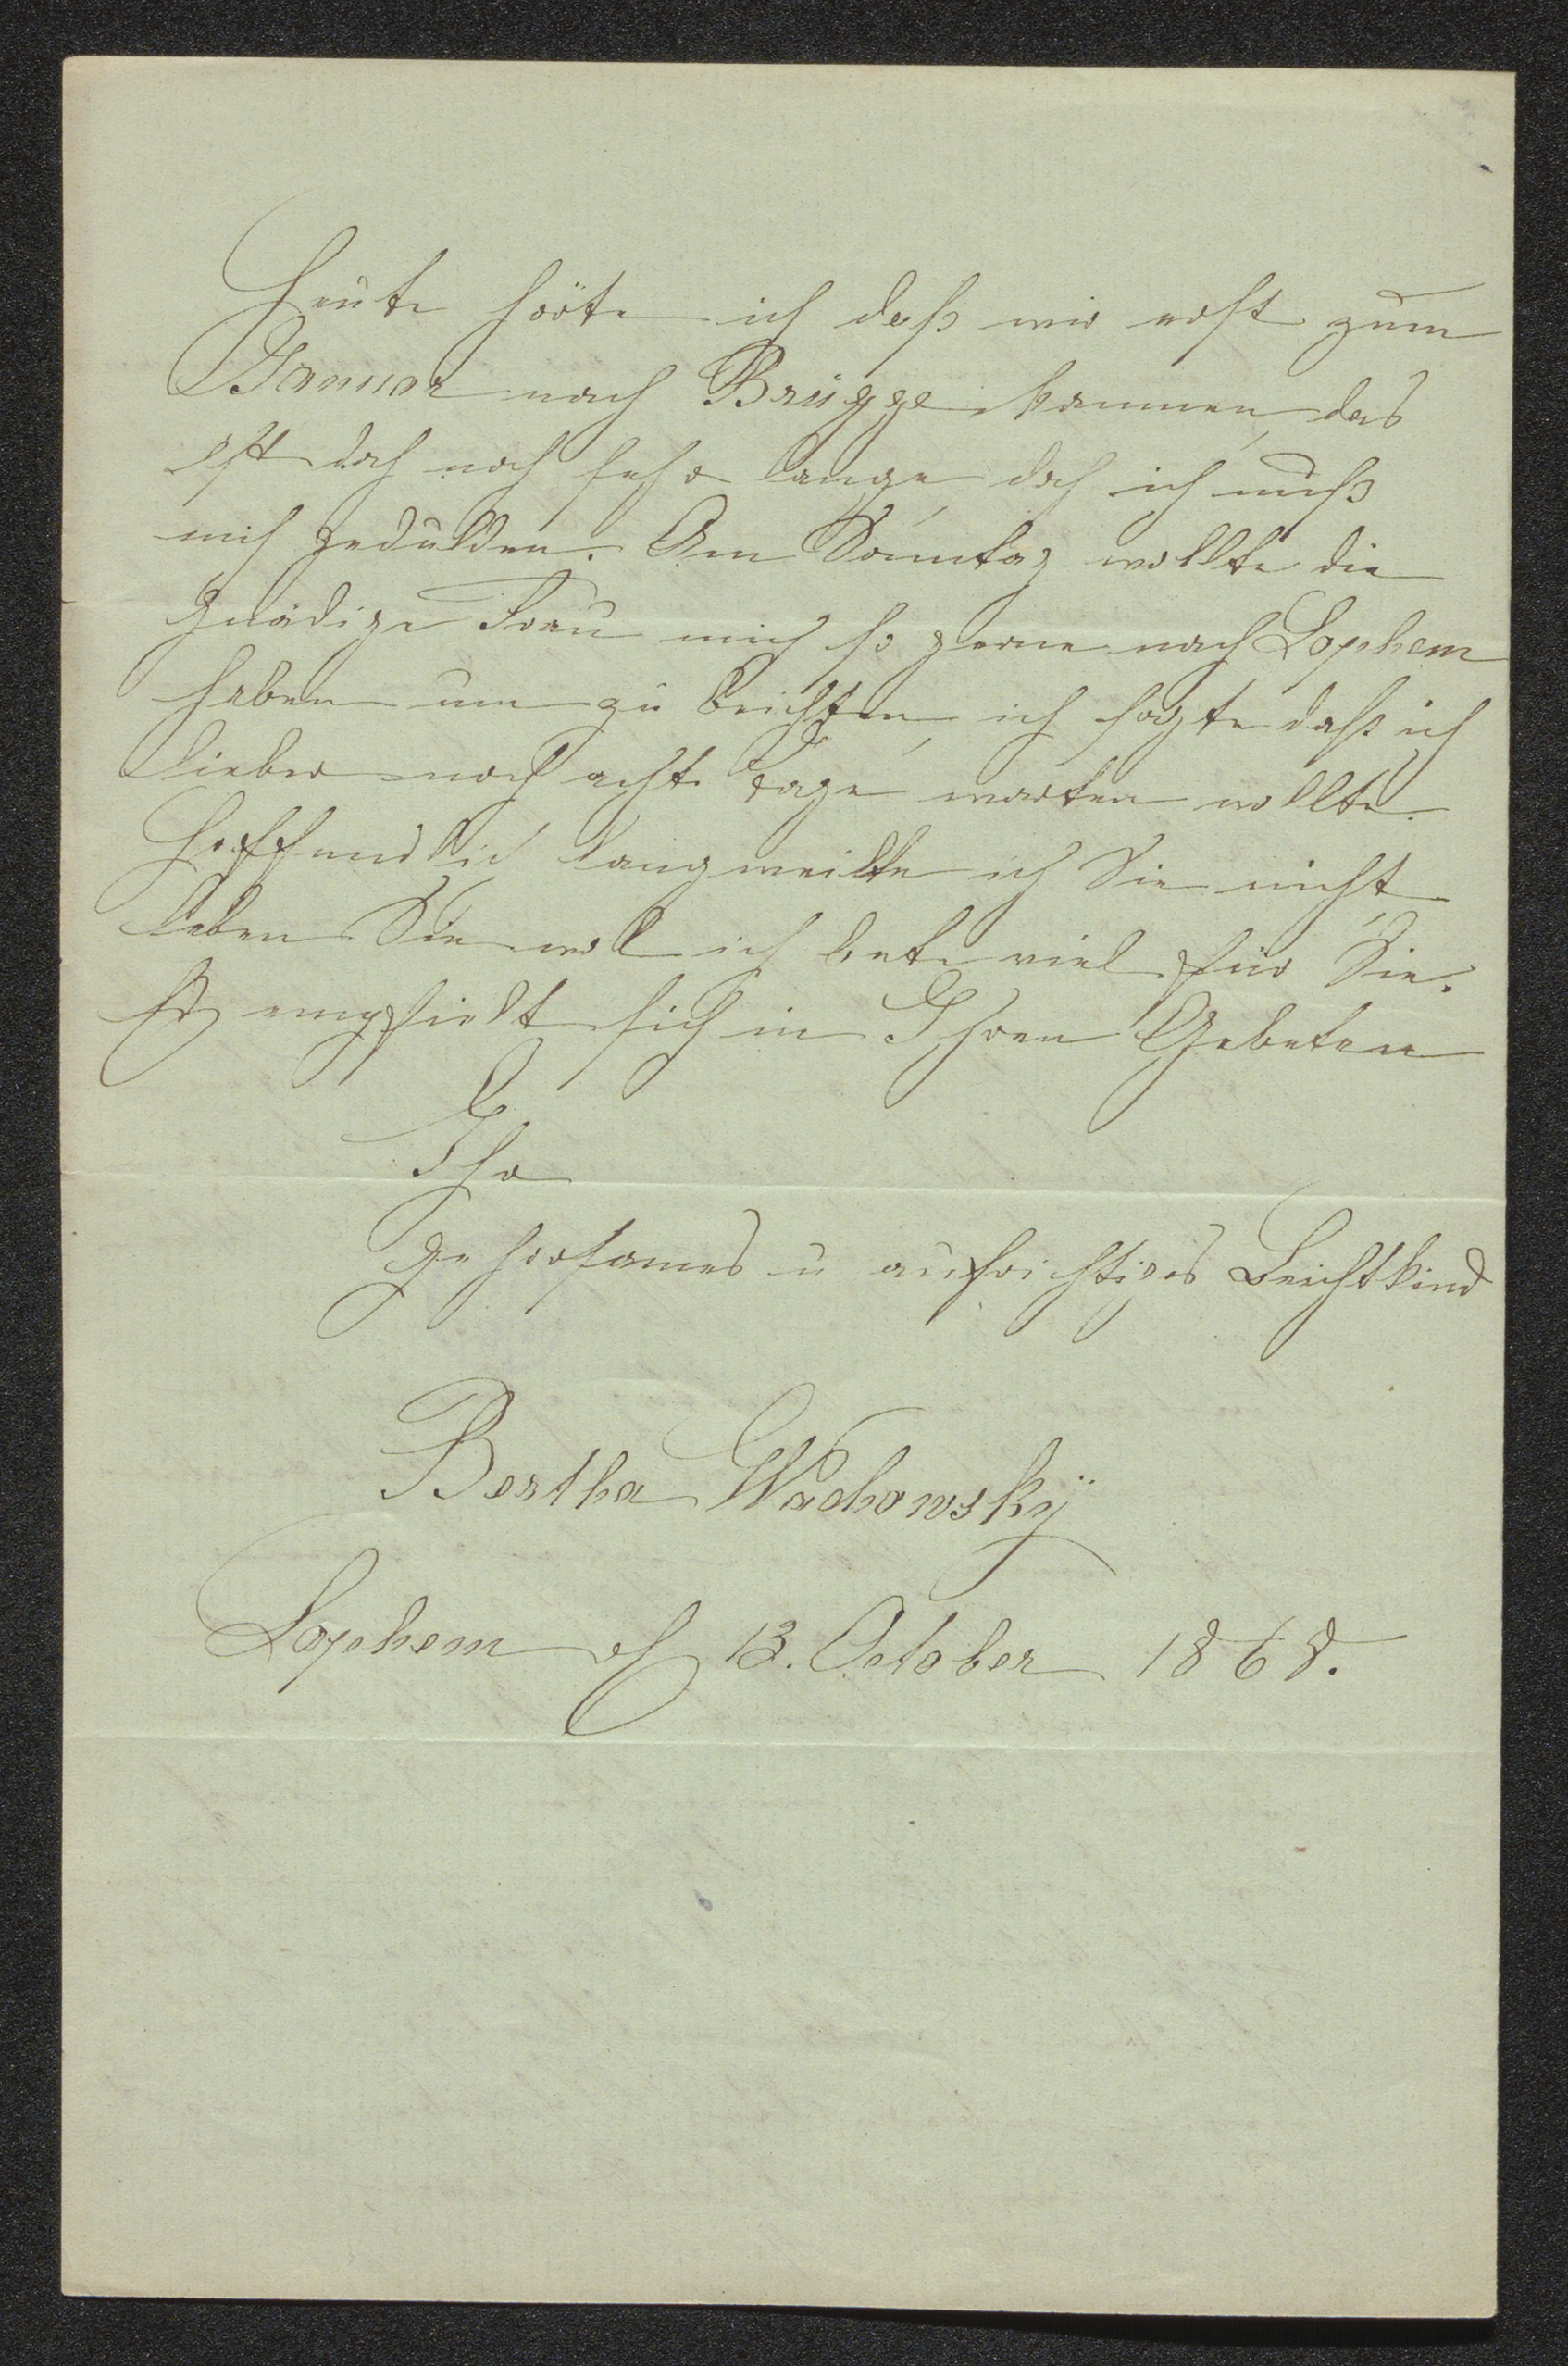 Heute hörte ich daß wir erst zum
Januar nach Brügge kommen, das
ist doch noch sehr lange, doch ich muß
mich gedulden. Am Sonntag wollte die
gnädige Frau mich so gerne nach Lophem
haben um zu beichten, ich sagte daß ich
lieber noch acht Tage warten wollte.
Hoffendlich langweilte ich Sie nicht
leben Sie wol ich bete viel für Sie.
Es empfielt sich in Ihren Gebeten
Ihr
gehorsames u aufrichtiges Beichtkind
Bertha Wachowskÿ
Lophem 13. October 1868.